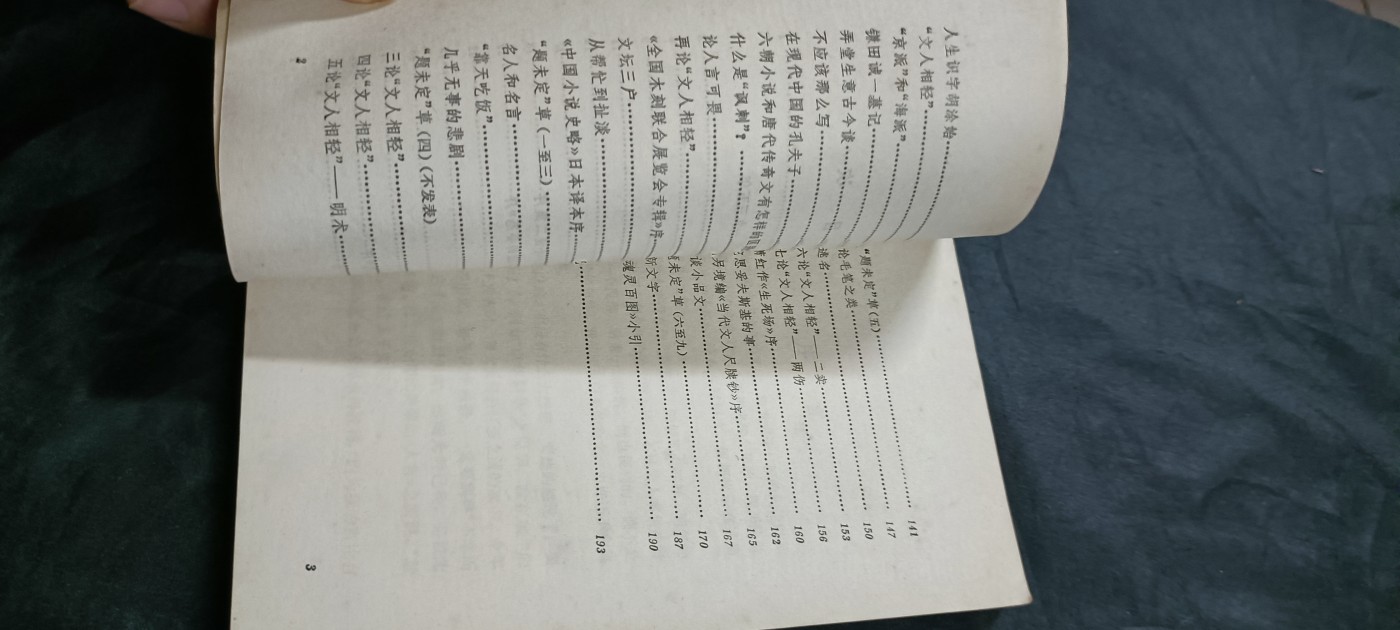 人生识字胡涂始
“文人相轻”
“京派”和“海派”
镰田诚一墓记
弄堂生意古今谈
不应该那么写
在现代中国的孔夫子
六朝小说和唐代传奇文有怎样的区
什么是“讽刺”？
论人言可畏
再论“文人相轻”
《全国木刻联合展览会专辑》序
文坛三户
从帮忙到扯淡
《中国小说史略》日本译本序
“题未定”草（一至三）
名人和名言
“靠天吃饭”
几乎无事的悲剧
“题未定”草（四）（不发表）
三论“文人相轻”
四论“文人相轻”
五论“文人相轻”——明术
2
“题未定”草（五） 141
论毛笔之类 147
逃名 150
六论“文人相轻”——二卖 153
七论“文人相轻”——两伤 156
萧红作《生死场》序 160
思妥夫斯基的事 162
另境编《当代文人尺牍钞》序 165
谈小品文 167
题未定”草（六至九） 170
新文字 187
魂灵百图》小引 190
193
3